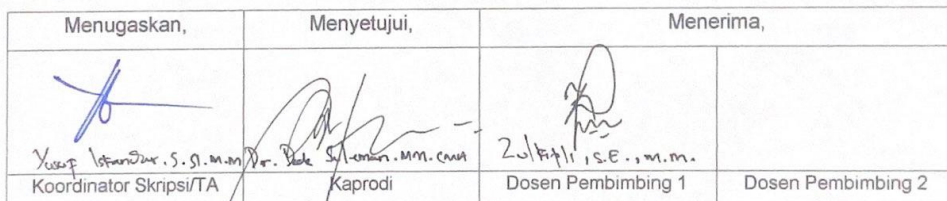 Menugaskan, Menyetujui, Menerima,
Yusuf Iskandar, S.Si.M.M Dr. Dede Suleman. MM. CMA Zulkifli, S.E., M.M.
Koordinator Skripsi/TA Kaprodi Dosen Pembimbing 1 Dosen Pembimbing 2